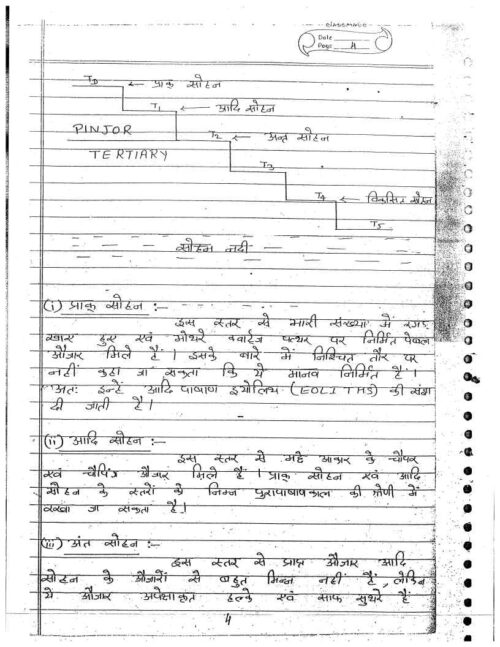 CLASSMATE
Date
Page 4
T0 ← प्राक् सोहन
T1 ← आदि सोहन
PINJOR T2 ← अन्त सोहन
TERTIARY
T3
T4 ← विकसित सोहन
T5
सोहन नदी
(i) प्राक् सोहन :-
इस स्तर से भारी संख्या में रगड़
खाए हुए एवं मोथरे क्वार्टज पत्थर पर निर्मित पेबल
औजार मिले हैं। इसके बारे में निश्चित तौर पर
नहीं कहा जा सकता कि ये मानव निर्मित हैं।
अतः इन्हें आदि पाषाण इयोलिथ (EOLITHS) की संज्ञा
दी जाती है।
(ii) आदि सोहन :-
इस स्तर से भद्दे आकार के चौपर
एवं चौपिंग औजार मिले हैं। प्राक् सोहन एवं आदि
सोहन के स्तरों को निम्न पुरापाषाणकाल की श्रेणी में
रखा जा सकता है।
(iii) अंत सोहन :-
इस स्तर से प्राप्त औजार आदि
सोहन के औजारों से बहुत भिन्न नहीं हैं, लेकिन
ये औजार अपेक्षाकृत हल्के एवं साफ सुथरे हैं
4